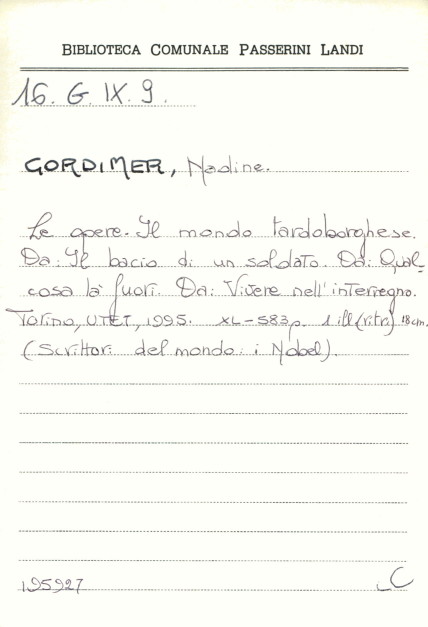 BIBLIOTECA COMUNALE PASSERINI LANDI
16. G. IX. 9.
GORDIMER, Nadine.
Le opere. Il mondo tardoborghese.
Da: Il bacio di un soldato. Da: Qual-
cosa là fuori. Da: Vivere nell'interregno.
Torino, UTET, 1995. XL-583p. 1 ill (ritr.) 18cm.
(Scrittori del mondo: i Nobel).
195927 C